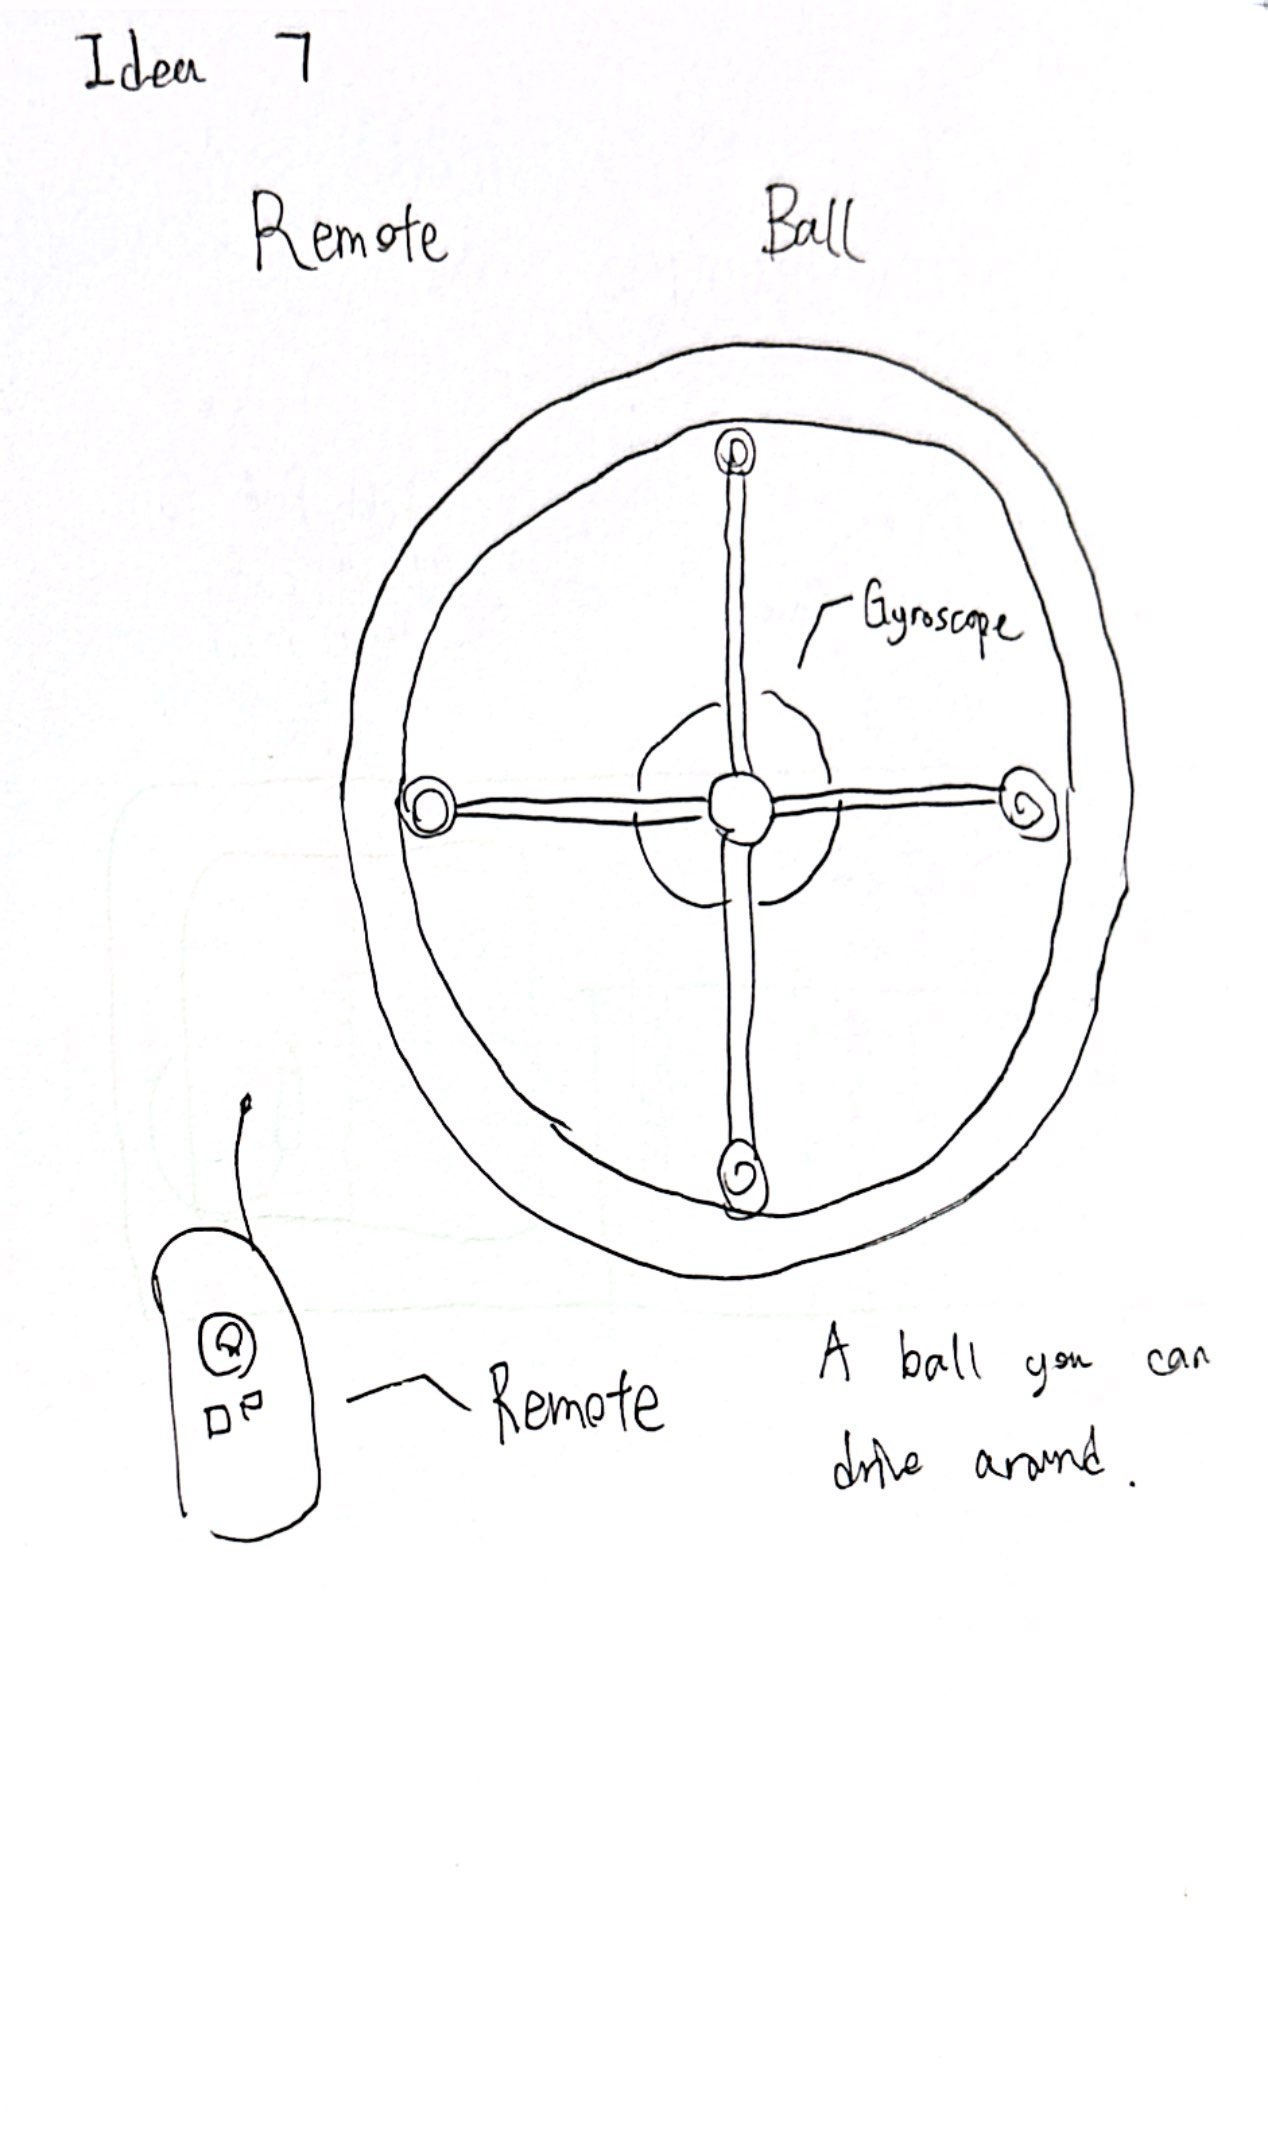 Idea 7
Remote Ball
Gyroscope
Remote
A ball you can
drive around.